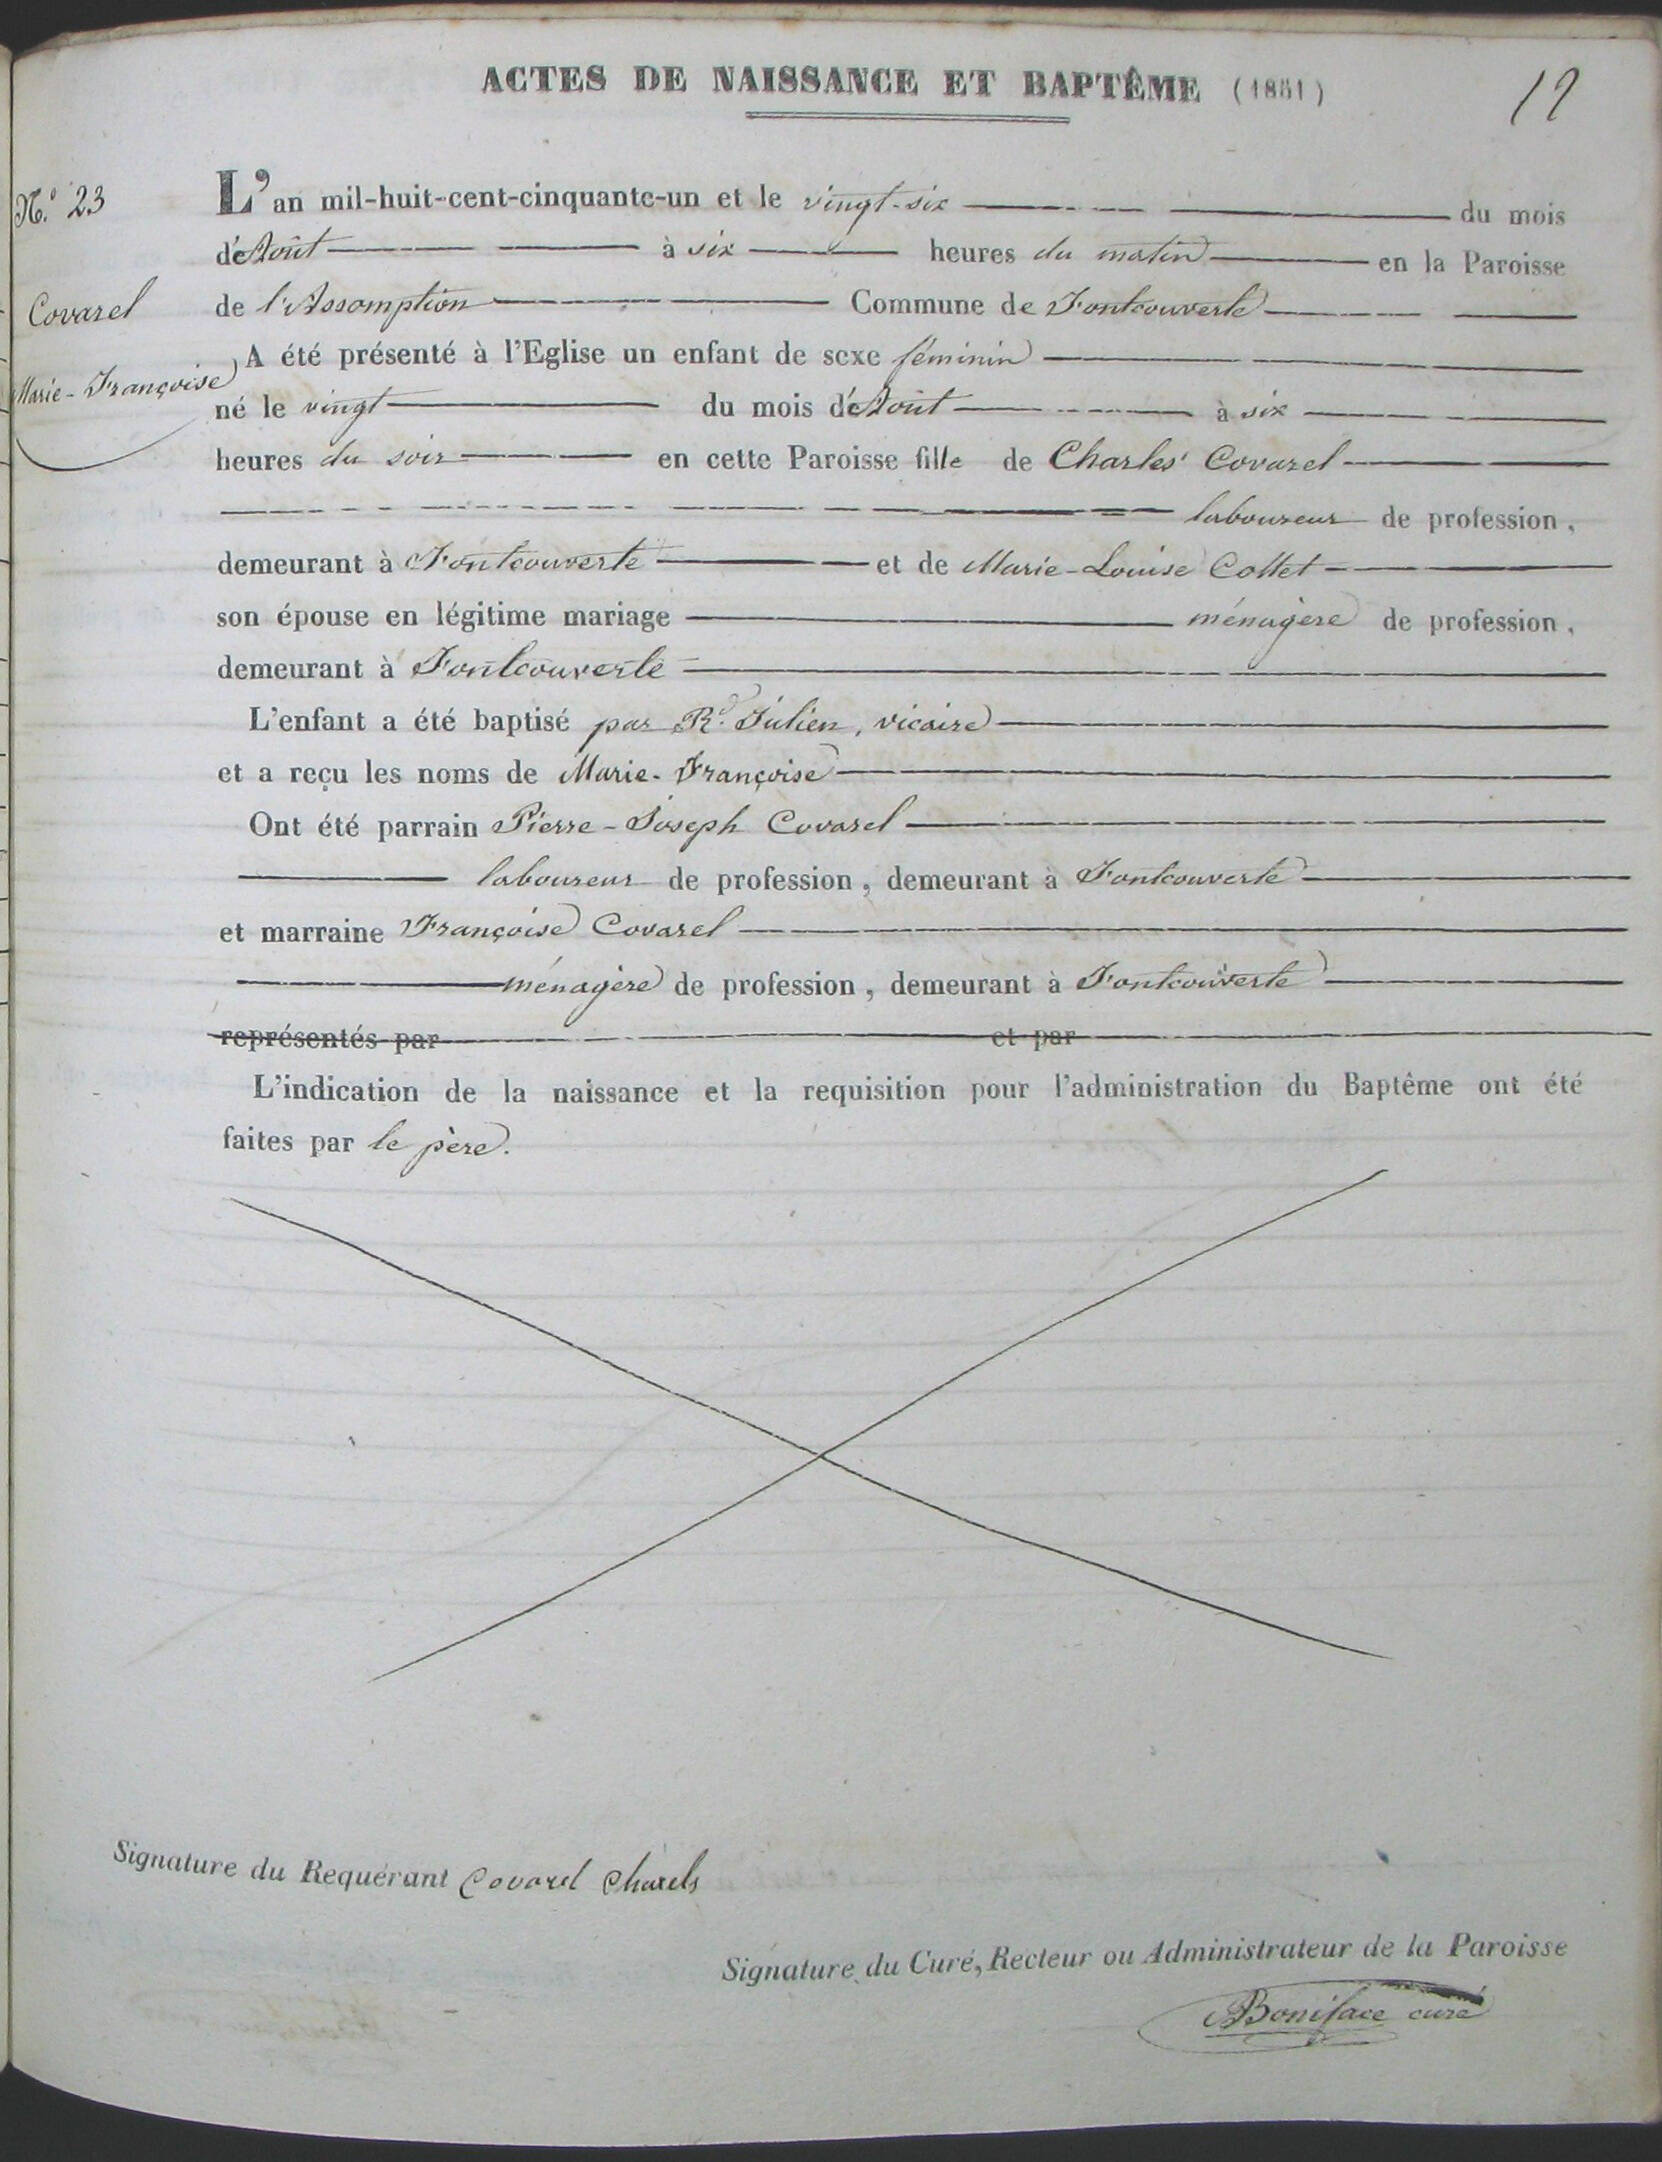 ACTES DE NAISSANCE ET BAPTÊME (1851)
12
N.º 23
L'an mil-huit-cent-cinquante-un et le vingt-six du mois
d'Août à six heures du matin en la Paroisse
Covarel
de l'Assomption Commune de Fontcouverte
A été présenté à l'Eglise un enfant de sexe féminin
Marie-Françoise
né le vingt du mois d'Août à six
heures du soir en cette Paroisse fille de Charles Covarel
laboureur de profession,
demeurant à Fontcouverte et de Marie-Louise Collet
son épouse en légitime mariage ménagère de profession,
demeurant à Fontcouverte
L'enfant a été baptisé par Rd. Julien, vicaire
et a reçu les noms de Marie-Françoise
Ont été parrain Pierre-Joseph Covarel
laboureur de profession, demeurant à Fontcouverte
et marraine Françoise Covarel
ménagère de profession, demeurant à Fontcouverte
représentés par et par
L'indication de la naissance et la requisition pour l'administration du Baptême ont été
faites par le père.
Signature du Requérant Covarel Charels
Signature du Curé, Recteur ou Administrateur de la Paroisse
Boniface curé